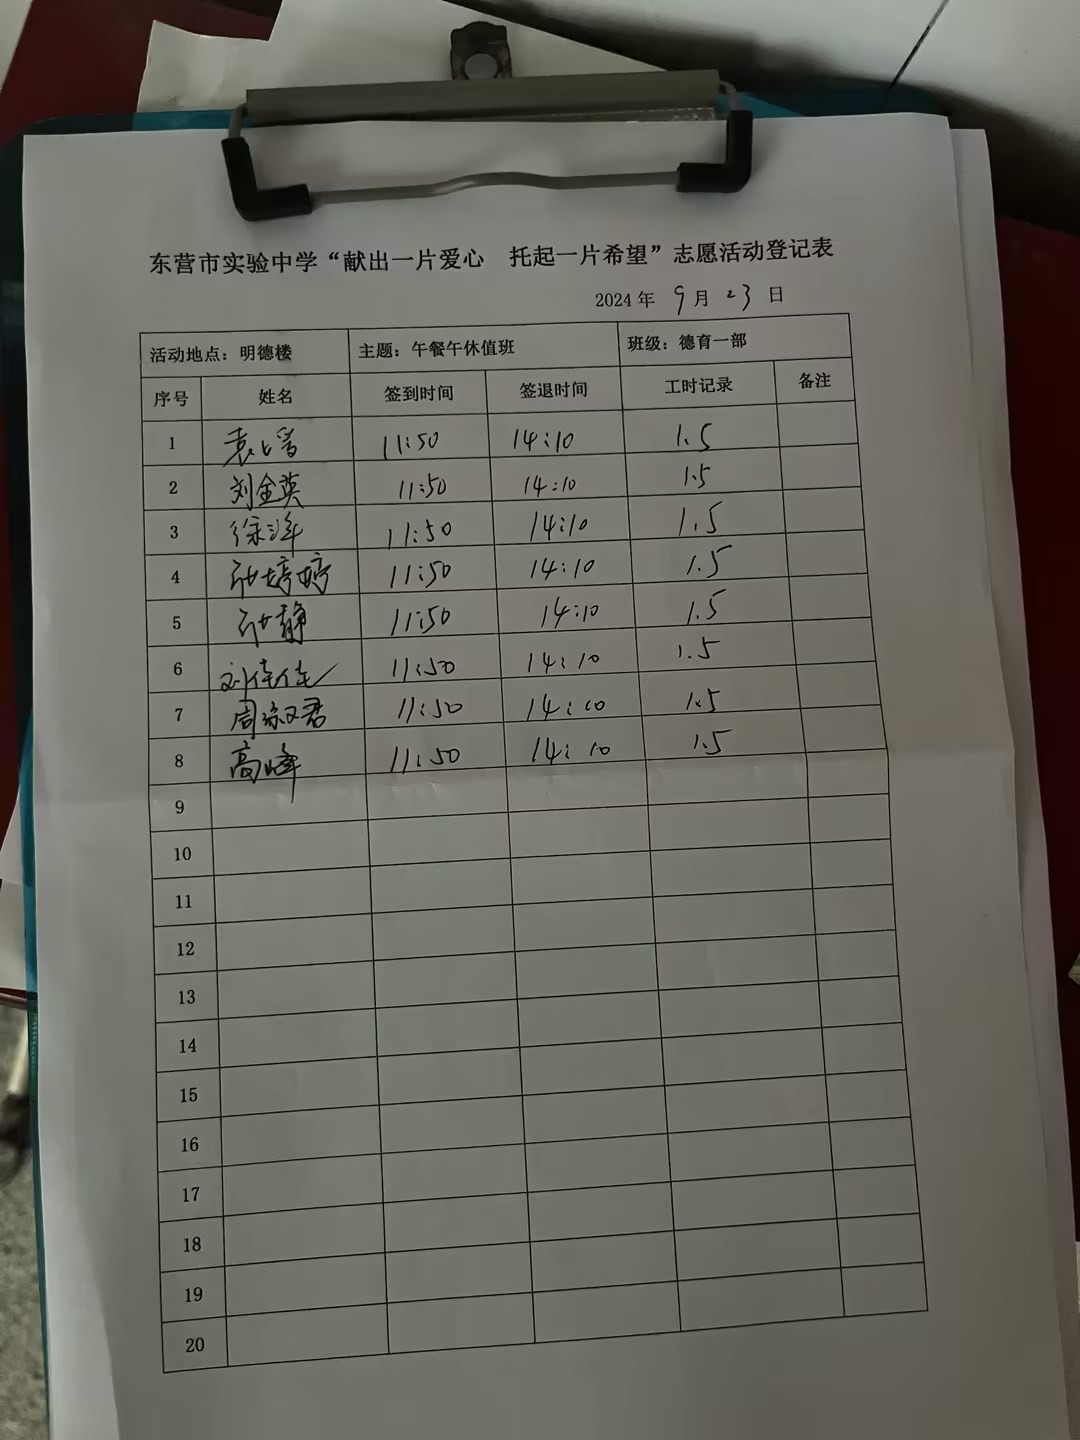 东营市实验中学“献出一片爱心 托起一片希望”志愿活动登记表
2024年 9月 23 日
活动地点：明德楼 主题：午餐午休值班 班级：德育一部
序号 姓名 签到时间 签退时间 工时记录 备注
1 袁 11:50 14:10 1.5
2 刘金英 11:50 14:10 1.5
3 徐洋 11:50 14:10 1.5
4 张婷婷 11:50 14:10 1.5
5 张静 11:50 14:10 1.5
6 刘佳佳 11:50 14:10 1.5
7 周淑君 11:50 14:10 1.5
8 高峰 11:50 14:10 1.5
9
10
11
12
13
14
15
16
17
18
19
20